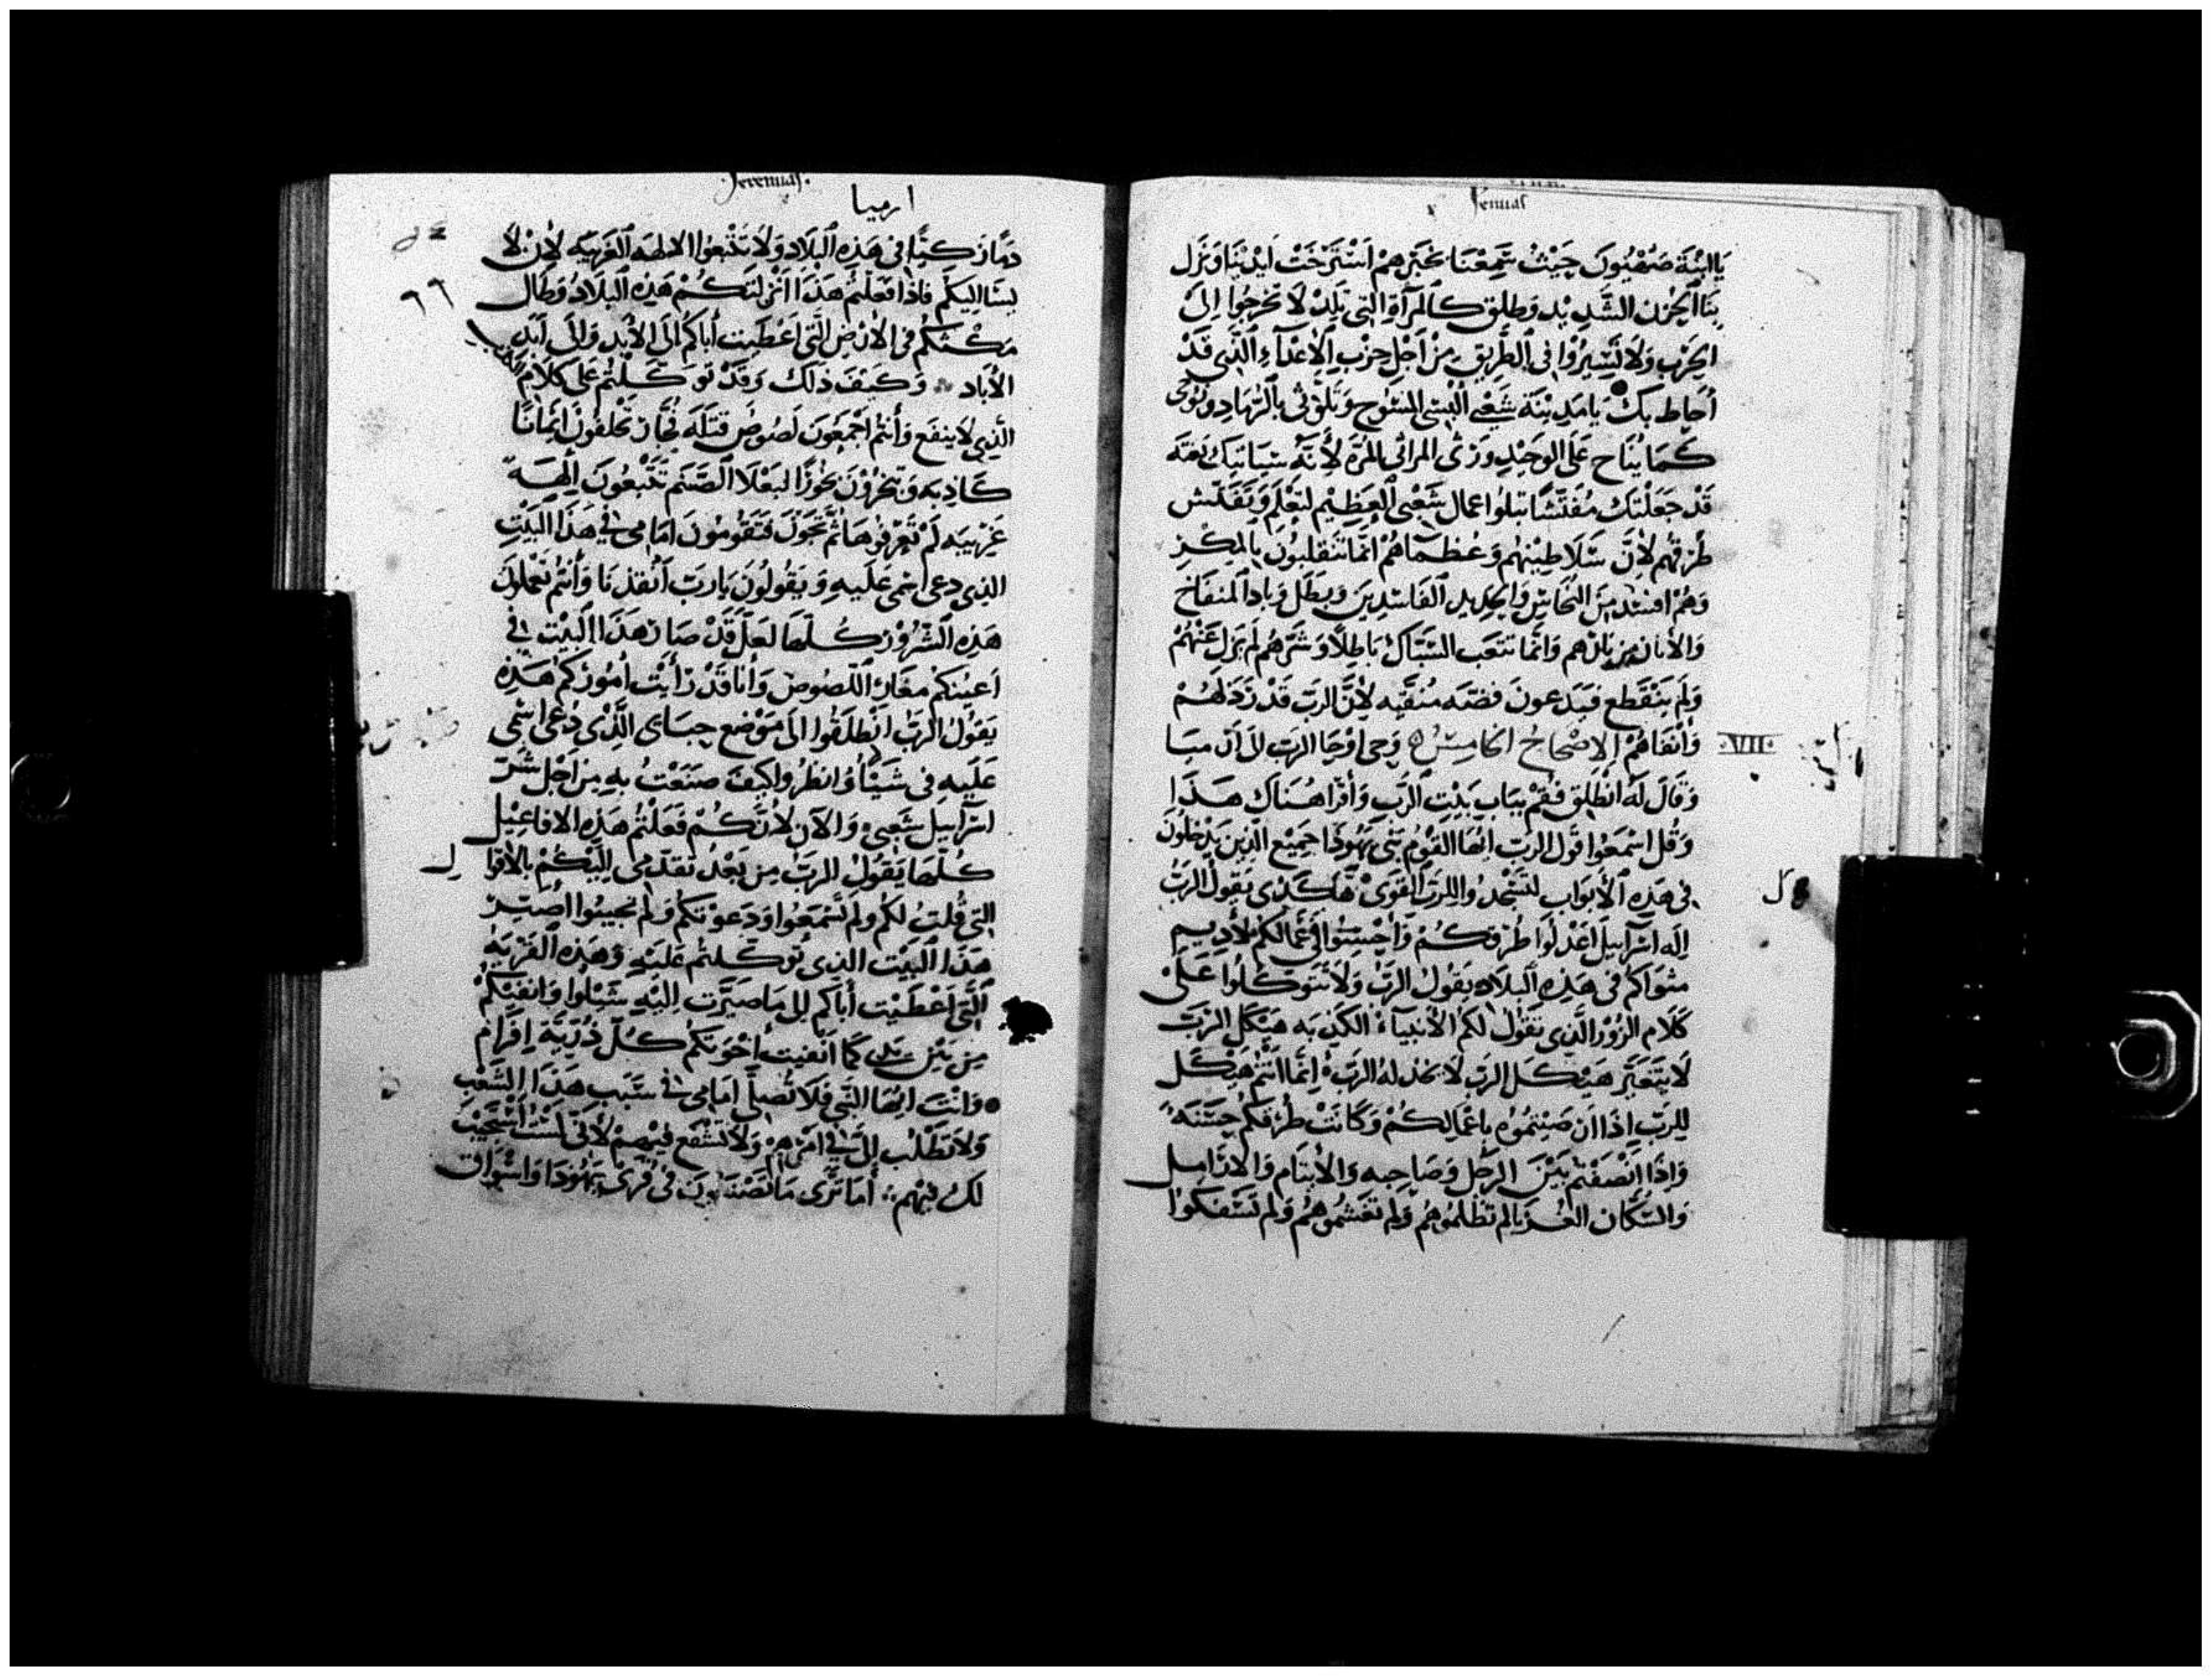 Jeremias
يا ابنة صهيون حيث سمعنا بخبرهم استرخت ايدينا ونزل
بنا الحزن الشديد وطلق كالمرآة التى تلد لا تخرجوا الى
الحرب ولا تسيروا فى الطريق من اجل حزب الاعداء الذى قد
أحاط بك يا مدينة شعبى البسى المسوح وتلوثى بالرماد ونوحى
كما يناح على الوحيد ورثى المراثى المرة لأنه سيأتيك بغته
قد جعلتك مفتشا تبلوا اعمال شعبى العظيم لتعلم وتفتش
طرقهم لأن سلاطينهم وعظماهم انما تنقلبون بالمكر
وهم افسد من النحاس والحديد الفاسدين وبطل وباد المنفاخ
والأبار من نارهم وانما تتعب السباك باطلا وشرهم لم يزل عنهم
ولم ينقطع فيدعون فضه منقيه لأن الرب قد رذلهم
وأنفاهم الاصحاح الخامس وحى اوحا الرب الى ارميا
VII
وقال له انطلق فقم بباب بيت الرب وأقرا هناك هذا
وقل اسمعوا قول الرب ايها القوم بنى يهوذا جميع الذين يدخلون
فى هذه الأبواب لتسجدوا للرب القوى هاكذى يقول الرب
اله اسرآييل اعدلوا طرقكم وأحسنوا فى اعمالكم لأديم
مثواكم فى هذه البلاد يقول الرب ولا تتوكلوا على
كلام الزور الذى تقول لكم الأنبياء الكذبه هيكل الرب
لا يتغير هيكل الرب لا يخذله الرب انما انتم هيكل
للرب اذا ان صينتموه باعمالكم وكانت طرقكم حسنه
واذا انصفتم بين الرجل وصاحبه والأيتام والارامل
والسكان الغربا لم تظلموهم ولم تغشموهم ولم تسفكوا
Jeremias
ارميا
دما زكيا فى هذه البلاد ولا تتبعوا الالهه الغريبه لأن لا
يسا اليكم فاذا فعلتم هذا انزلتكم هذه البلاد وطال
٩٦
مكثكم فى الأرض التى اعطيت أباكم الى الأبد والى أبد
الأباد وكيف ذلك وقد توكلتم على كلام
الذى لا ينفع وأنتم اجمعون لصوص قتله فجار تحلفون ايمانا
كاذبه وتبخرون بخورا لبعلا الصنم تتبعون الهه
غريبه لم تعرفوها ثم تجون فتقومون امامى فى هذا البيت
الذى دعى اسمى عليه وتقولون يارب أنقذنا وأنتم تعملون
هذه الشرور كلها لعل قد صار هذا البيت فى
اعينكم مغار اللصوص وأنا قد رأيت أموركم هذه
يقول الرب انطلقوا الى موضع حباى الذى دعى اسمى
عليه فى شيلوا وانظروا كيف صنعت به من اجل شر
اسرآييل شعبى والآن لأنكم فعلتم هذه الافاعيل
كلها يقول الرب من بعد تقدمى اليكم بالأقوال
التى قلت لكم ولم تسمعوا ودعوتكم ولم تجيبوا أصير
هذا البيت الذى توكلتم عليه وهذه القريه
التى اعطيت أباكم بل ما صيرت اليه شيلوا وانفيكم
من بين يدى كما انفيت أخوتكم كل ذرية افرام
وانت ايها النبى فلا تصلى امامى فى سبب هذا الشعب
ولا تطلب الى فى امرهم ولا تشفع فيهم لأنى لست استجيب
لك فيهم أما ترى ما يصنعون فى قرى يهوذا واسواق